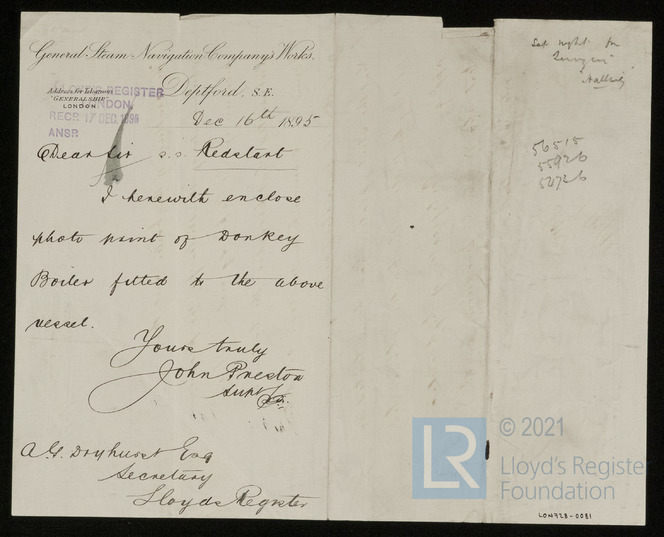 General Steam Navigation Company's Works.
Deptford, S.E.
Address for Telegrams
"GENERALSHIP"
LONDON
REGISTER
LONDON
RECD 17 DEC. 1895
ANSD
Dec 16th 1895
Dear Sir s.s. Redstart
I herewith enclose
photo print of Donkey
Boiler fitted to the above
vessel.
Yours truly
John Preston
Supt
A.G. Dryhurst Esq
Secretary
Lloyds Register
56515
55926
LR
© 2021
Lloyd's Register
Foundation
LON728-0081